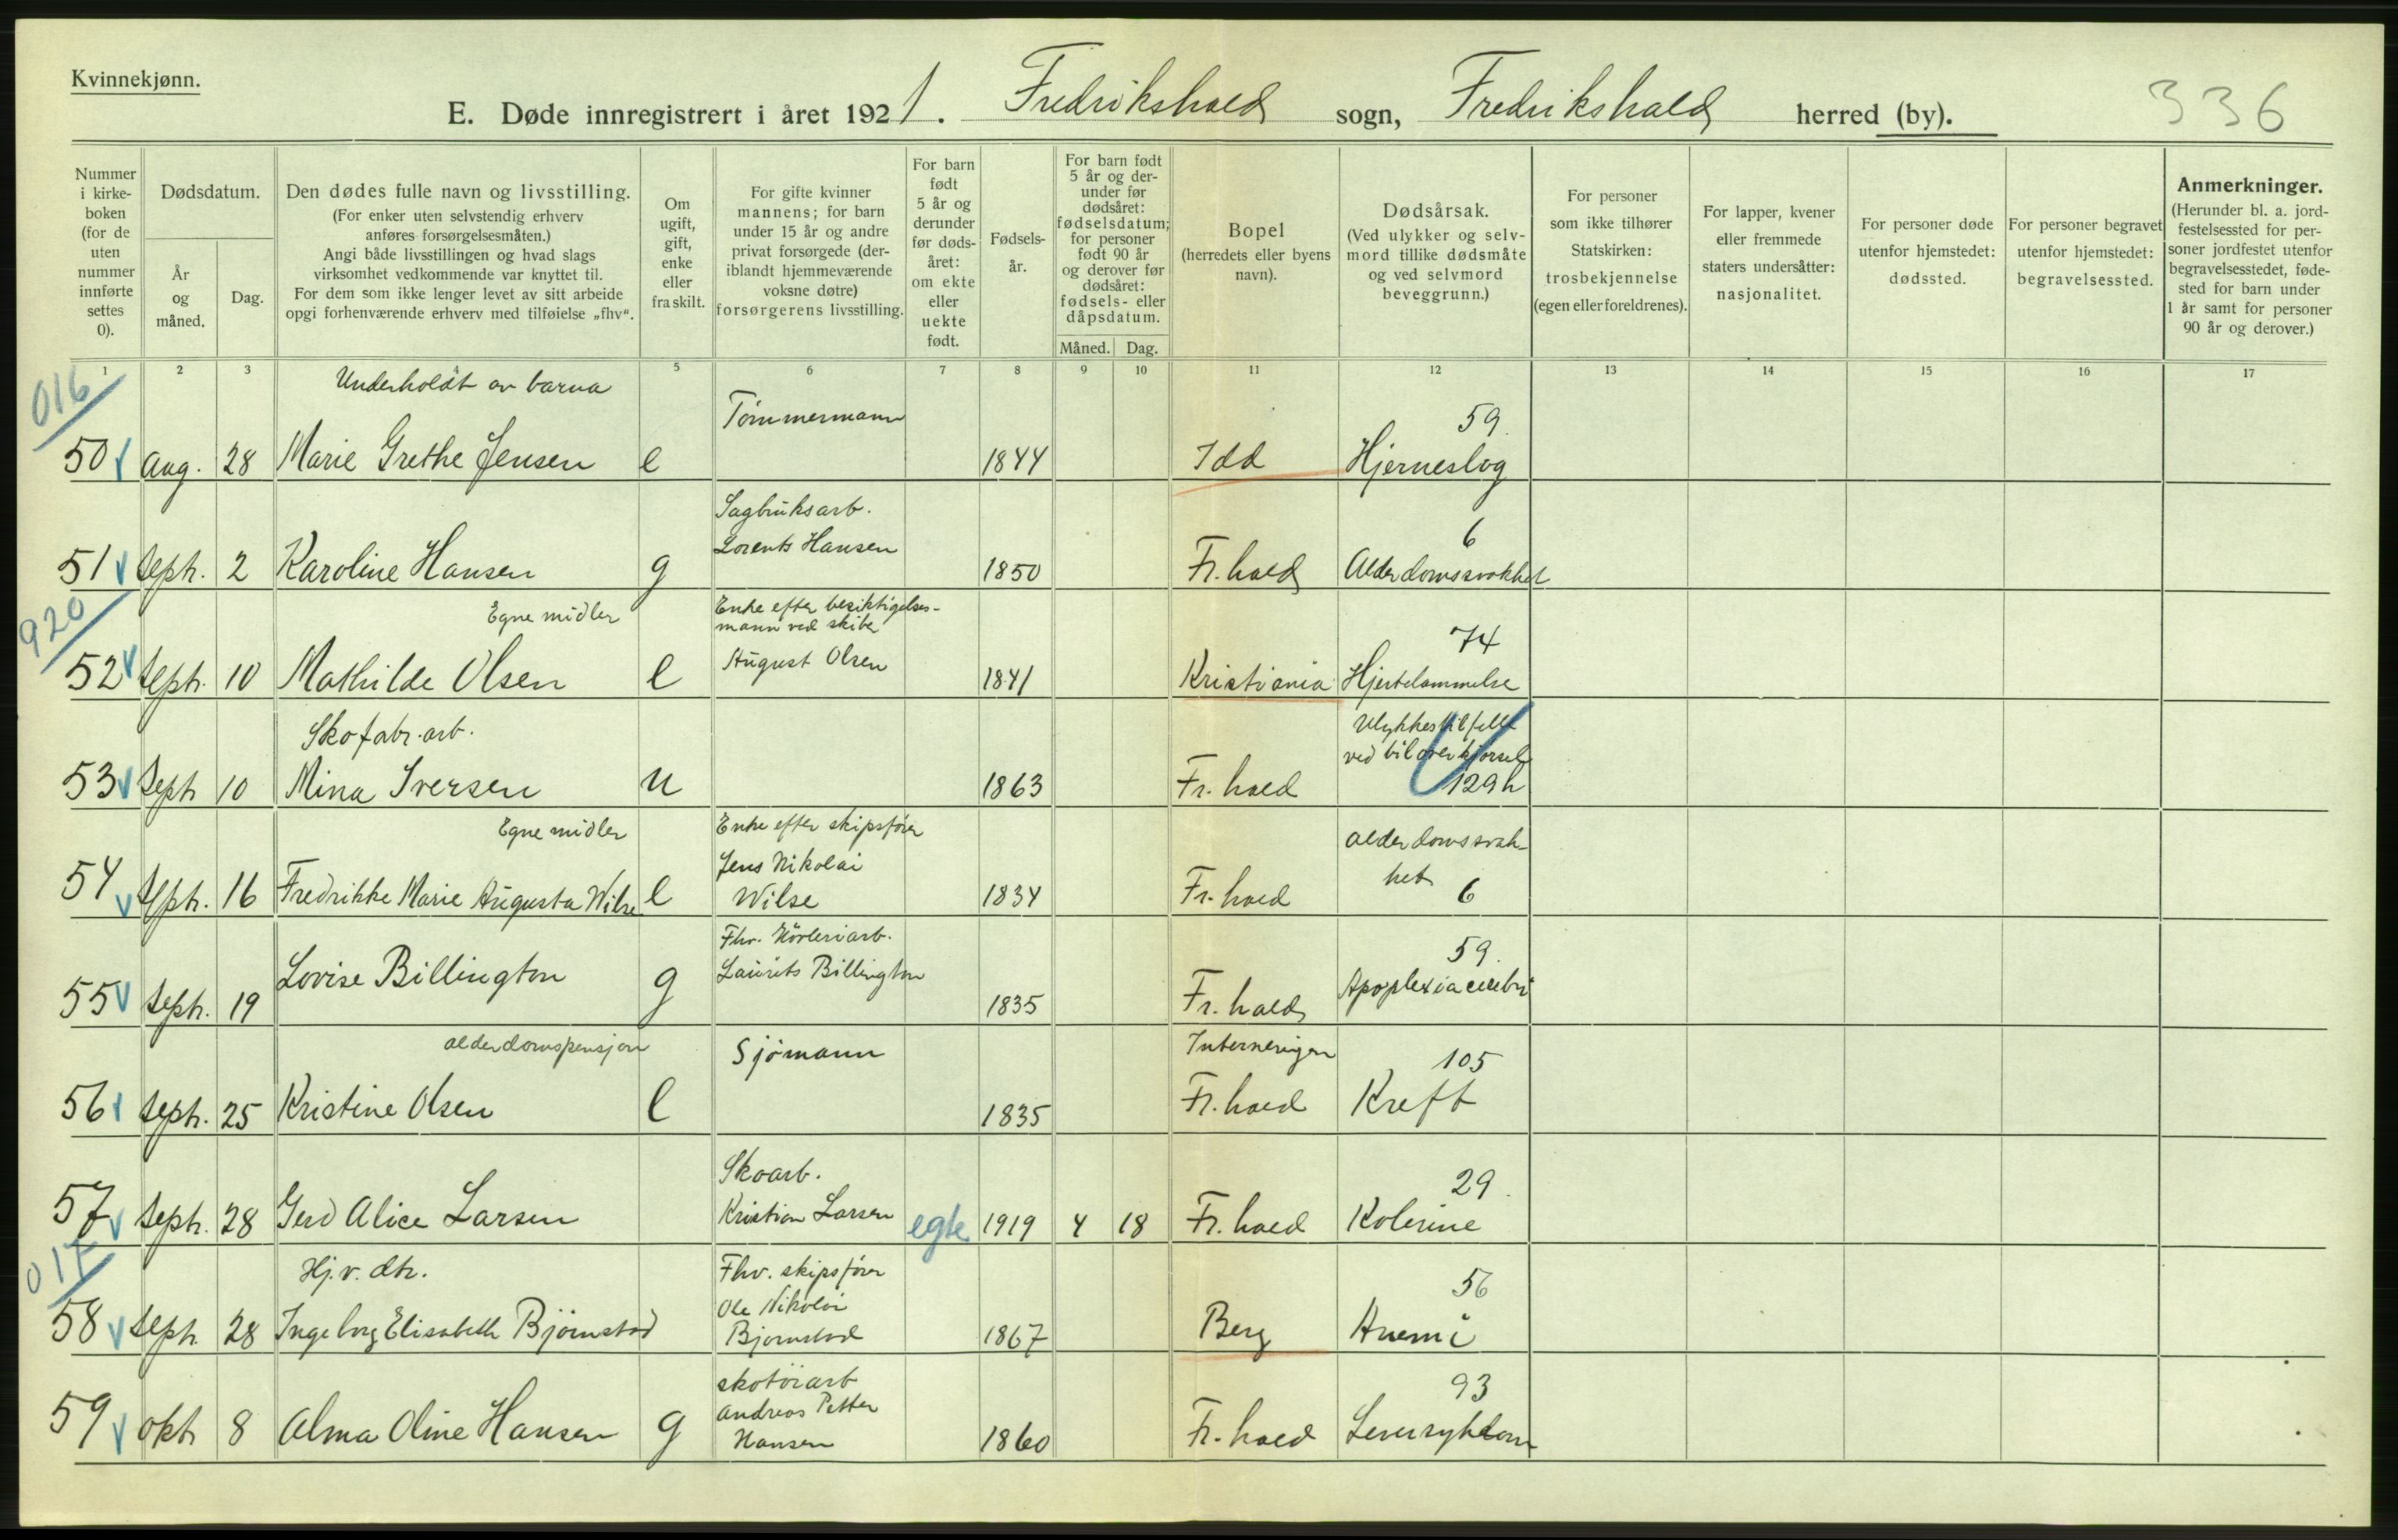 Kvinnekjønn.
E. Døde innregistrert i året 1921. Fredrikshald sogn, Fredrikshald herred (by). 336
Nummer i kirke-boken (for de uten nummer innførte settes 0).
Dødsdatum.
År og måned.
Dag.
Den dødes fulle navn og livsstilling.
(For enker uten selvstendig erhverv
anføres forsørgelsesmåten.)
Angi både livsstillingen og hvad slags
virksomhet vedkommende var knyttet til.
For dem som ikke lenger levet av sitt arbeide
opgi forhenværende erhverv med tilføielse „fhv“.
Om ugift, gift, enke eller fraskilt.
For gifte kvinner
mannens; for barn
under 15 år og andre
privat forsørgede (der-
iblandt hjemmeværende
voksne døtre)
forsørgerens livsstilling.
For barn født 5 år og derunder før døds-året: om ekte eller uekte født.
Fødsels-år.
For barn født
5 år og der-
under før
dødsåret:
fødselsdatum;
for personer
født 90 år
og derover før
dødsåret:
fødsels- eller
dåpsdatum.
Måned. Dag.
Bopel
(herredets eller byens
navn).
Dødsårsak.
(Ved ulykker og selv-
mord tillike dødsmåte
og ved selvmord
beveggrunn.)
For personer
som ikke tilhører
Statskirken:
trosbekjennelse
(egen eller foreldrenes).
For lapper, kvener
eller fremmede
staters undersåtter:
nasjonalitet.
For personer døde
utenfor hjemstedet:
dødssted.
For personer begravet
utenfor hjemstedet:
begravelsessted.
Anmerkninger.
(Herunder bl. a. jord-
festelsessted for per-
soner jordfestet utenfor
begravelsesstedet, føde-
sted for barn under
1 år samt for personer
90 år og derover.)
1 2 3 4 5 6 7 8 9 10 11 12 13 14 15 16 17
016
Underholdt av barna
Tømmermann
59.
50 Aug. 28 Marie Grethe Jensen e 1844 Idd Hjerneslag
Sagbruksarb.
Lorents Hansen
6
51 Sept. 2 Karoline Hansen g 1850 Fr.hald Alderdomssvakhet
920
Egne midler
Enke efter besiktigelses-
mann ved skibe
August Olsen
74
52 Sept. 10 Mathilde Olsen e 1841 Kristiania Hjertelammelse
Skofabr.arb.
Ulykkestilfelle
ved biloverkjørsel
53 Sept 10 Mina Iversen u 1863 Fr.hald 129h
Egne midler
Enke efter skipsfører
Jens Nikolai
Wilse
Alderdomssvak-
het 6
54 Sept. 16 Fredrikke Marie Augusta Wilse e 1834 Fr.hald
Fhv. Høvleriarb.
Laurits Billington
59.
55 Sept. 19 Lovise Billington g 1835 Fr.hald Apoplexia cerebri
Alderdomspensjon
Sjømann
105
56 Sept. 25 Kristine Olsen e 1835 Fr.hald Kreft
Skoarb.
Kristian Larsen
29.
57 Sept. 28 Gerd Alice Larsen egte 1919 4 18 Fr.hald Kolerine
017
Hj.v. dtr.
Fhv. skipsfører
Ole Nikolai
Bjørnstad
56
58 Sept. 28 Ingeborg Elisabeth Bjørnstad 1867 Berg Anemi
skotøiarb
Andreas Petter
Hansen
93
59 Okt 8 Alma Oline Hansen g 1860 Fr.hald Leversykdom